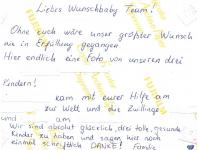 Liebes Wunschbaby Team!
Ohne euch wäre unser größter Wunsch
nie in Erfüllung gegangen.
Hier endlich eine Foto von unseren drei
Kindern!
kam mit eurer Hilfe am
zur Welt und die Zwillinge
und am
Wir sind absolut glücklich, drei tolle, gesunde
Kinder zu haben und sagen hier noch
einmal schriftlich DANKE! Familie